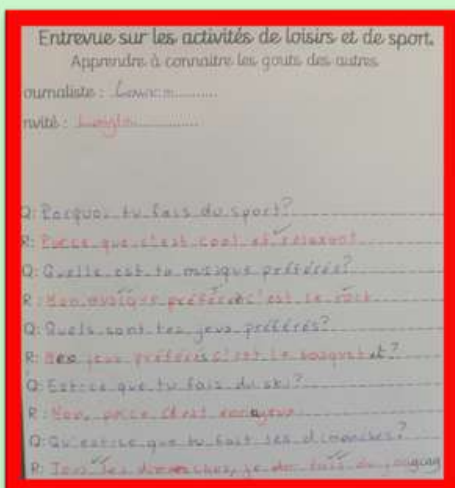 Entrevue sur les activités de loisirs et de sport.
Apprendre à connaitre les gouts des autres
ournaliste :
nvité :
Q: Porquoi tu fais du sport?
R: Parce que c'est cool et relaxant
Q: Quelle est ta musique préférés?
R: Mon musique préférée c'est le rock
Q: Quels sont tes jeux préférés?
R: Mes jeux préférés c'est le basquet et?
Q: Est-ce que tu fais du ski?
R: Non, parce c'est ennuyeux
Q: Qu'est-ce que tu fait les dimanches?
R: Tous les dimanches, je fais du jogging